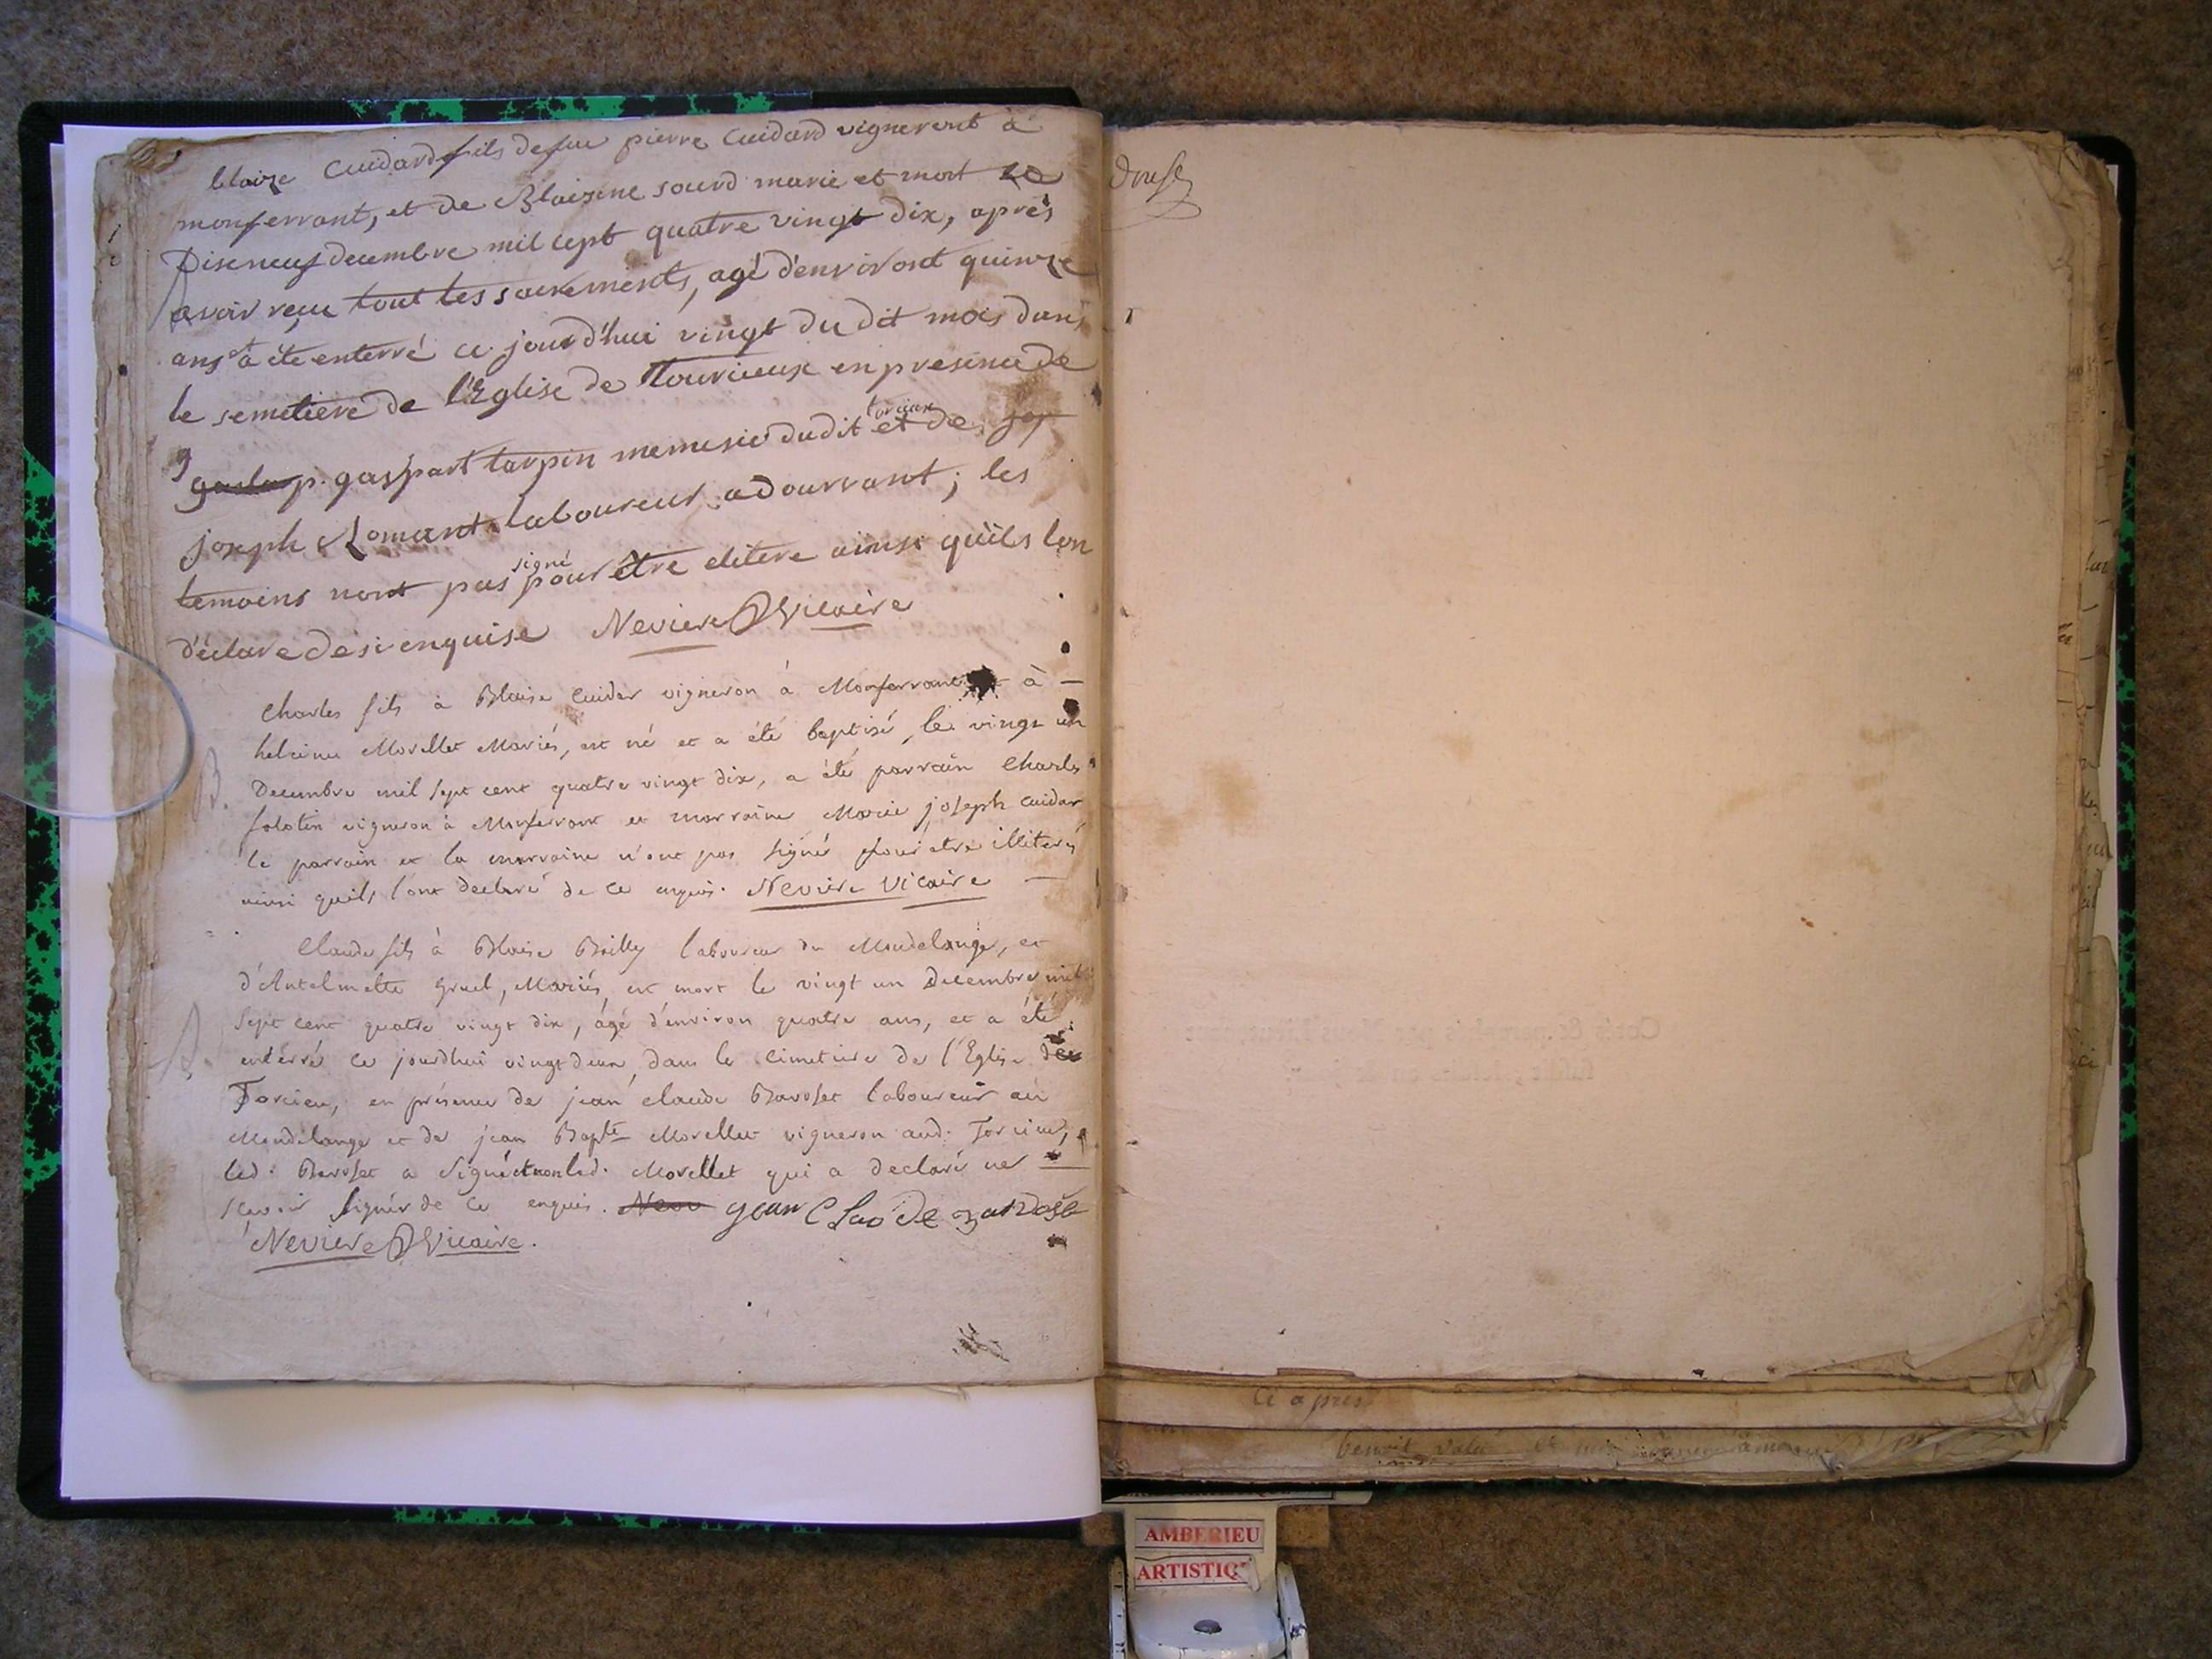 blaize Cuidard fils de feu pierre Cuidard vigneront à
monferrant, et de Blaizine sourd marie et mort le
Diseneuf decembre mil cept quatre vingt dix, aprés
avoir reçu tout les sacrements, agé d'environt quinze
ans a été enterré ce jourd'hui vingt du dit mois dans
le semetiere de l'Eglise de Tourcieux en presence de
p. gaspart tarpin menusie dudit torcieux et de jop
joseph Romant laboureur a dourvant; les
temoins nont pas signé pour être elitere ainsi quïls lon
d'éclare de si enquise Neviere Vicaire
Charles fils à Blaise Cuidar vigneron à Monferrant à
heleine Morellet Mariés, est né et a été baptisé, le vingt un
Decembre mil sept cent quatre vingt dix, a été parrain Charles
folotin vigneron à Monferrant et marraine Marie joseph Cuidar
le parrain et la marraine n'ont pas signé pour etre illiterés
ainsi quils l'ont declaré de ce enquis. Neviere Vicaire
B.
Claude fils à Blaise Bailly laboureur du Mondelange, et
d'Antelmette gruel, Mariés, est mort le vingt un Decembre mil
sept cent quatre vingt dix, ágé d'environ quatre ans, et a été
enterré ce jourdhui vingt deux, dans le Cimetiere de l'Eglise de
Torcieu, en présence de jean claude Bardset laboureur au
Mondelange et de jean Bapte Morellet vigneron aud. Torcieu,
led: Bardset a Signé et non led. Morellet qui a declaré ne
scavoir signer de ce enquis. Neve jean Claude bardoset
Neviere Vicaire.
S.
Douse
Ce apres
benoit
AMBERIEU
ARTISTIQ